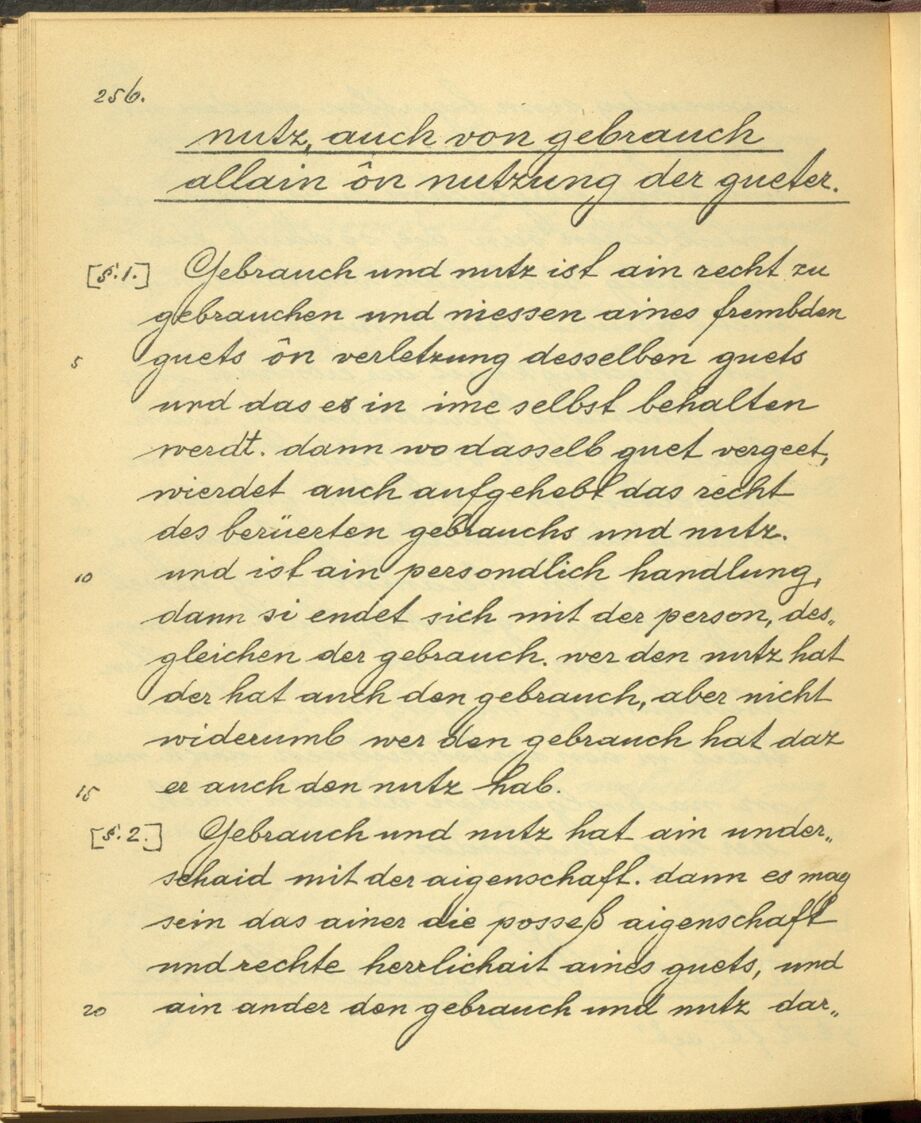 256.
nutz, auch von gebrauch
allain ôn nutzung der gueter.
[§.1.] Gebrauch und nutz ist ain recht zu
gebrauchen und niessen aines frembden
5 guets ôn verletzung desselben guets
und das es in ime selbst behalten
werdt. dann wo dasselb guet vergeet,
wierdet auch aufgehebt das recht
des berüerten gebrauchs und nutz.
10 und ist ain persondlich handlung,
dann si endet sich mit der person, des„
gleichen der gebrauch. wer den nutz hat
der hat auch den gebrauch, aber nicht
widerumb wer den gebrauch hat daz
15 er auch den nutz hab.
[§.2.] Gebrauch und nutz hat ain under„
schaid mit der aigenschaft. dann es mag
sein das ainer die posseß aigenschaft
und rechte herrlichait aines guets, und
20 ain ander den gebrauch und nutz dar„